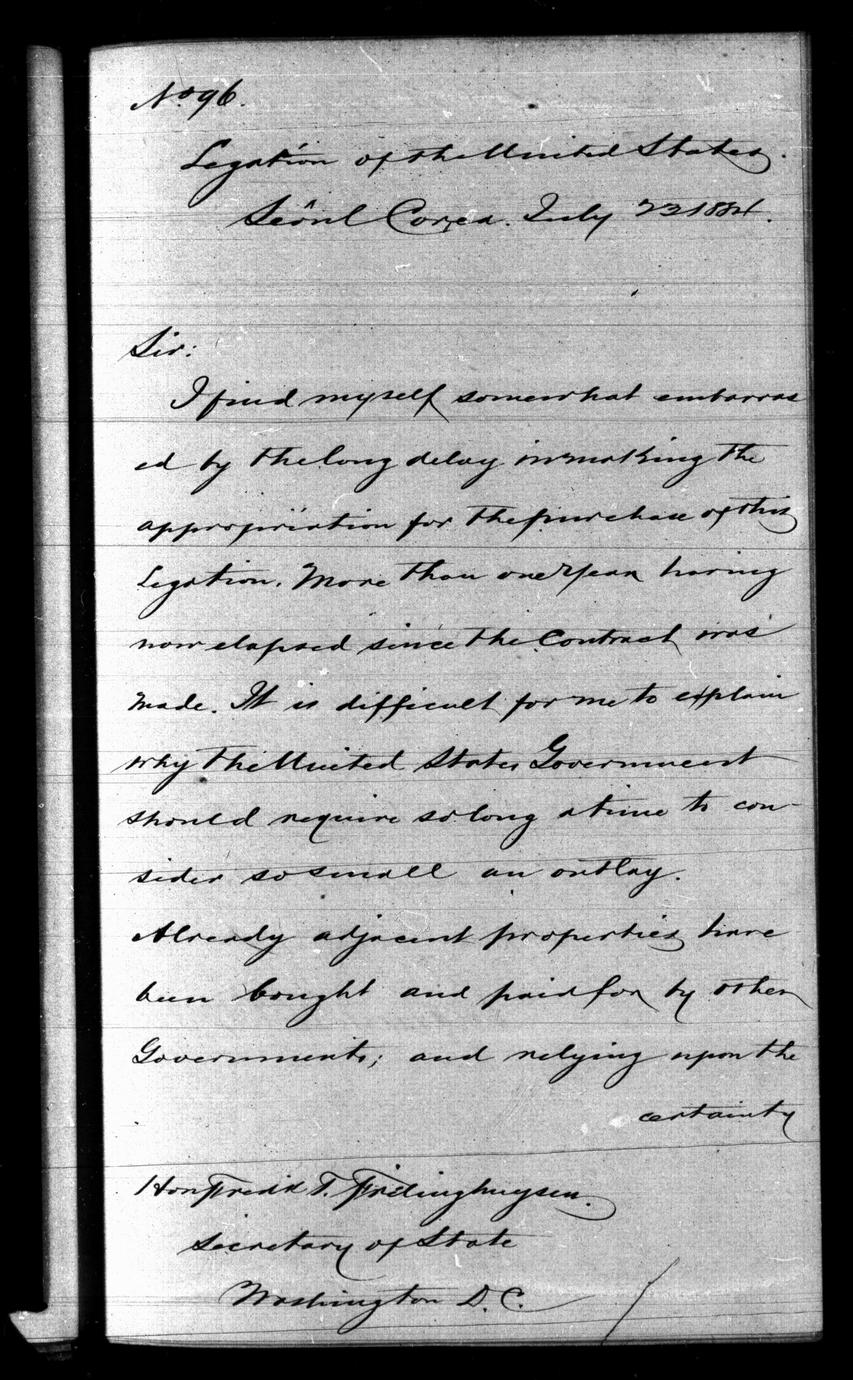 No 96.
Legation of the United States.
Seôul Corea. July 23 1884.
Sir:
I find myself somewhat embarras
ed by the long delay in making the
appropriation for the purchase of this
Legation. More than one year having
now elapsed since the Contract was
made. It is difficult for me to explain
why the United States Government
should require so long a time to con-
sider so small an outlay.
Already adjacent properties have
been bought and paid for by other
Governments; and relying upon the
certainty
Hon Fredk T. Frelinghuysen.
Secretary of State
Washington D.C.